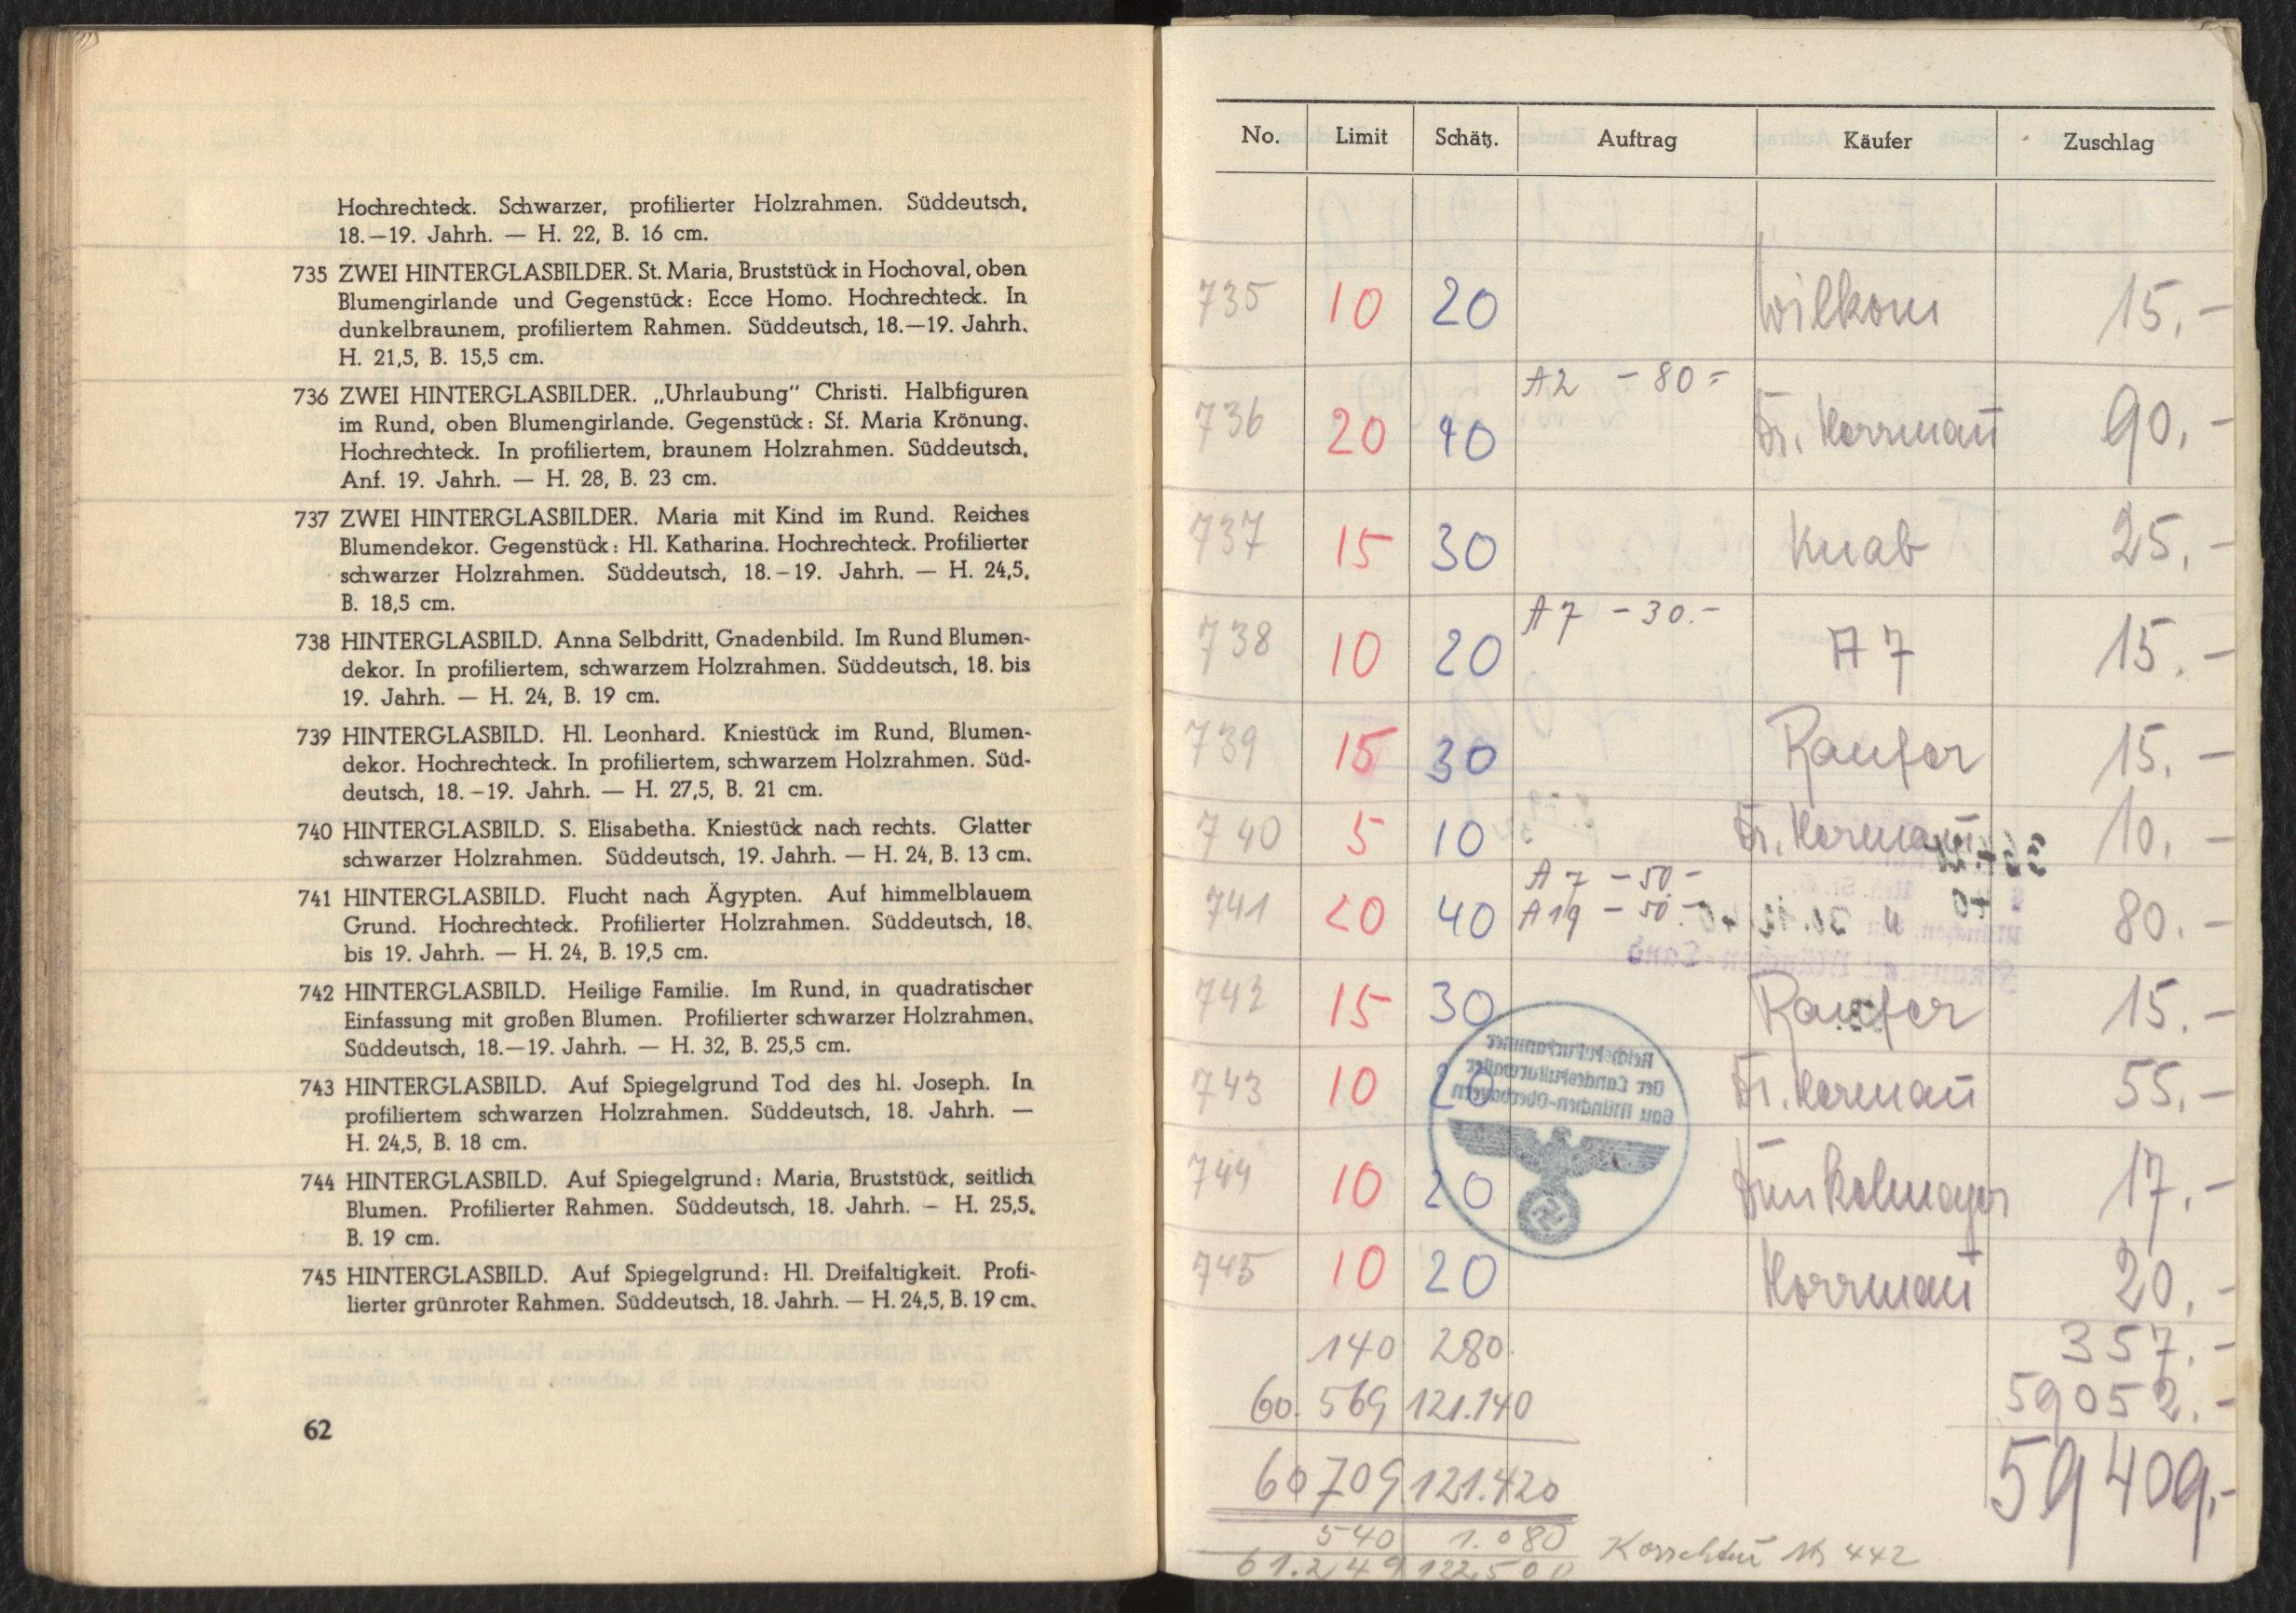 Hochrechteck. Schwarzer, profilierter Holzrahmen. Süddeutsch,
18.—19. Jahrh. — H. 22, B. 16 cm.
735 ZWEI HINTERGLASBILDER. St. Maria, Bruststück in Hochoval, oben
Blumengirlande und Gegenstück: Ecce Homo. Hochrechteck. In
dunkelbraunem, profiliertem Rahmen. Süddeutsch, 18.—19. Jahrh.
H. 21,5, B. 15,5 cm.
736 ZWEI HINTERGLASBILDER. „Uhrlaubung" Christi. Halbfiguren
im Rund, oben Blumengirlande. Gegenstück: Sf. Maria Krönung.
Hochrechteck. In profiliertem, braunem Holzrahmen. Süddeutsch,
Anf. 19. Jahrh. — H. 28, B. 23 cm.
737 ZWEI HINTERGLASBILDER. Maria mit Kind im Rund. Reiches
Blumendekor. Gegenstück: Hl. Katharina. Hochrechteck. Profilierter
schwarzer Holzrahmen. Süddeutsch, 18.–19. Jahrh. — H. 24,5,
B. 18,5 cm.
738 HINTERGLASBILD. Anna Selbdritt, Gnadenbild. Im Rund Blumen-
dekor. In profiliertem, schwarzem Holzrahmen. Süddeutsch, 18. bis
19. Jahrh. — H. 24, B. 19 cm.
739 HINTERGLASBILD. Hl. Leonhard. Kniestück im Rund, Blumen-
dekor. Hochrechteck. In profiliertem, schwarzem Holzrahmen. Süd-
deutsch, 18.–19. Jahrh. — H. 27,5, B. 21 cm.
740 HINTERGLASBILD. S. Elisabetha. Kniestück nach rechts. Glatter
schwarzer Holzrahmen. Süddeutsch, 19. Jahrh. — H. 24, B. 13 cm.
741 HINTERGLASBILD. Flucht nach Ägypten. Auf himmelblauem
Grund. Hochrechteck. Profilierter Holzrahmen. Süddeutsch, 18.
bis 19. Jahrh. — H. 24, B. 19,5 cm.
742 HINTERGLASBILD. Heilige Familie. Im Rund, in quadratischer
Einfassung mit großen Blumen. Profilierter schwarzer Holzrahmen.
Süddeutsch, 18.—19. Jahrh. — H. 32, B. 25,5 cm.
743 HINTERGLASBILD. Auf Spiegelgrund Tod des hl. Joseph. In
profiliertem schwarzen Holzrahmen. Süddeutsch, 18. Jahrh. —
H. 24,5, B. 18 cm.
744 HINTERGLASBILD. Auf Spiegelgrund: Maria, Bruststück, seitlich
Blumen. Profilierter Rahmen. Süddeutsch, 18. Jahrh. – H. 25,5,
B. 19 cm.
745 HINTERGLASBILD. Auf Spiegelgrund: Hl. Dreifaltigkeit. Profi-
lierter grünroter Rahmen. Süddeutsch, 18. Jahrh. — H. 24,5, B. 19 cm.
62
No. Limit Schätz. Auftrag Käufer Zuschlag
735 10 20 Wilkom 15.-
A2 - 80 =
736 20 40 Dr. Herrmañ 90.-
737 15 30 Knab 25.-
A7 - 30.-
738 10 20 A7 15.-
739 15 30 15.-
740 5 10 Dr. Hermañ 10.-
A 7 - 50 -
741 20 40 A19 - 50.- 80.-
742 15 30 15.-
Reichskulturkammer
Der Landeskulturwalter
Gau München-Oberbayern
743 10 20 Dr. Hermañ 55.-
744 10 20 Dunkelmayer 17.-
745 10 20 Herrmañ 20.-
140 280. 357.-
60.569 121.140 59052.-
60709 121.420 59409.-
540 1.080 Korrektur Nr 442
61.249 122500